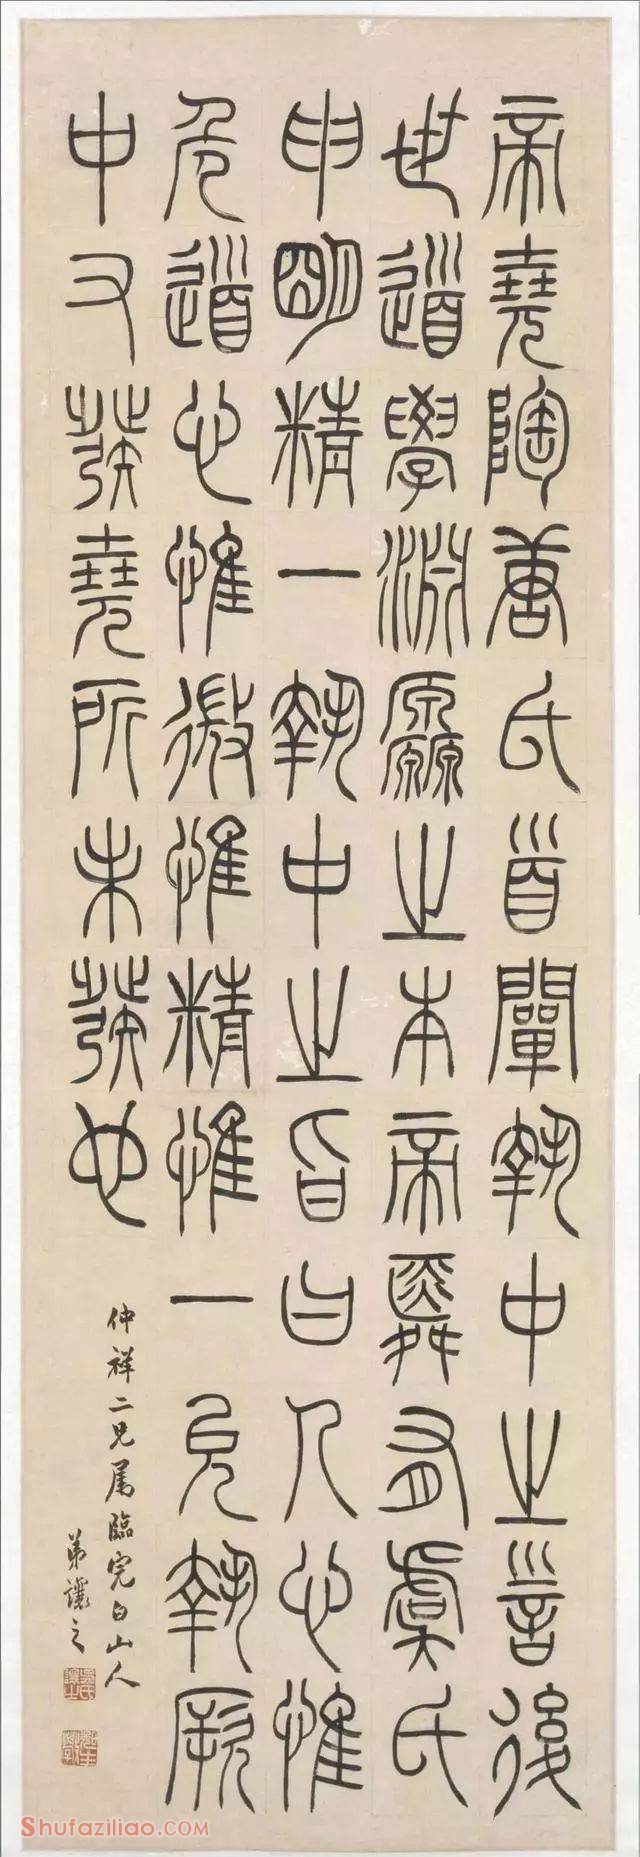 帝堯陶唐氏首闡執中之言後
世道學淵厵之本帝舜有虞氏
申明精一執中之旨曰人心惟
危道心惟微惟精惟一允執厥
中又發堯所未發也
仲祥二兄属臨完白山人
弟讓之
吳氏讓之
Shufaziliao.com